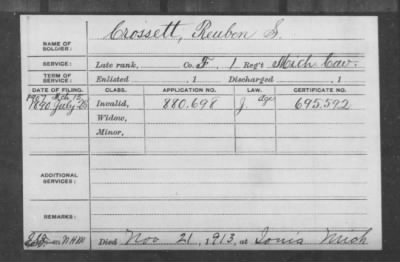 Crossett, Reuben S.
NAME OF SOLDIER:
SERVICE: Late rank, Co. F, 1 Reg't Mich Cav.
TERM OF SERVICE: Enlisted , 1 Discharged , 1
DATE OF FILING. CLASS. APPLICATION NO. LAW. CERTIFICATE NO.
1907 Mch 15 Age
1890 July 25 Invalid, 880.698 J 695.592
Widow,
Minor,
ADDITIONAL SERVICES:
REMARKS:
Died Nov 21, 1913, at Ionia Mich